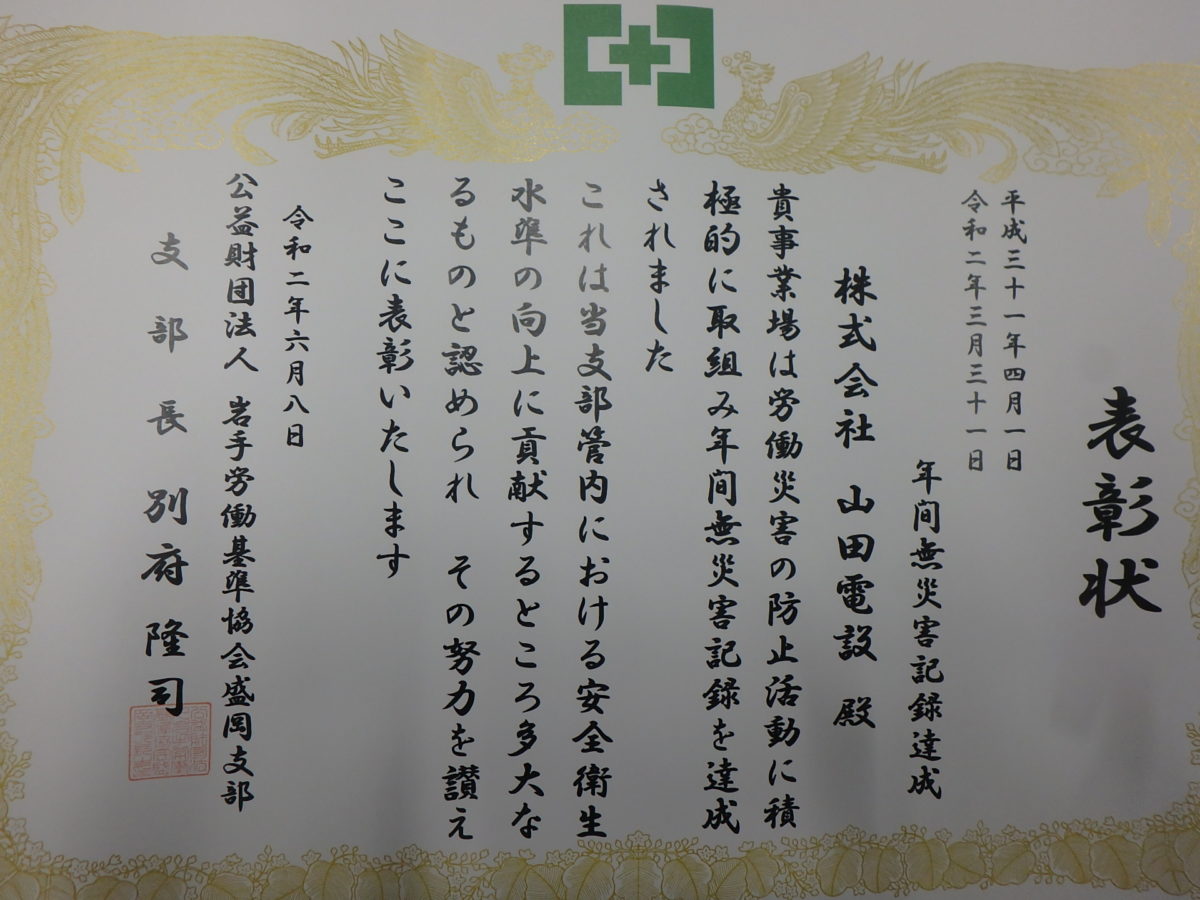 表彰状
平成三十一年四月一日
令和二年三月三十一日
年间無災害記録達成
株式会社 山田電設 殿
貴事業場は労働災害の防止活動に積
極的に取組み年间無災害記録を達成
されました
これは当支部管内における安全衛生
水準の向上に貢献するところ多大な
るものと認められ その努力を讃え
ここに表彰いたします
令和二年六月八日
公益財団法人 岩手労働基準協会盛岡支部
支部長 別府隆司